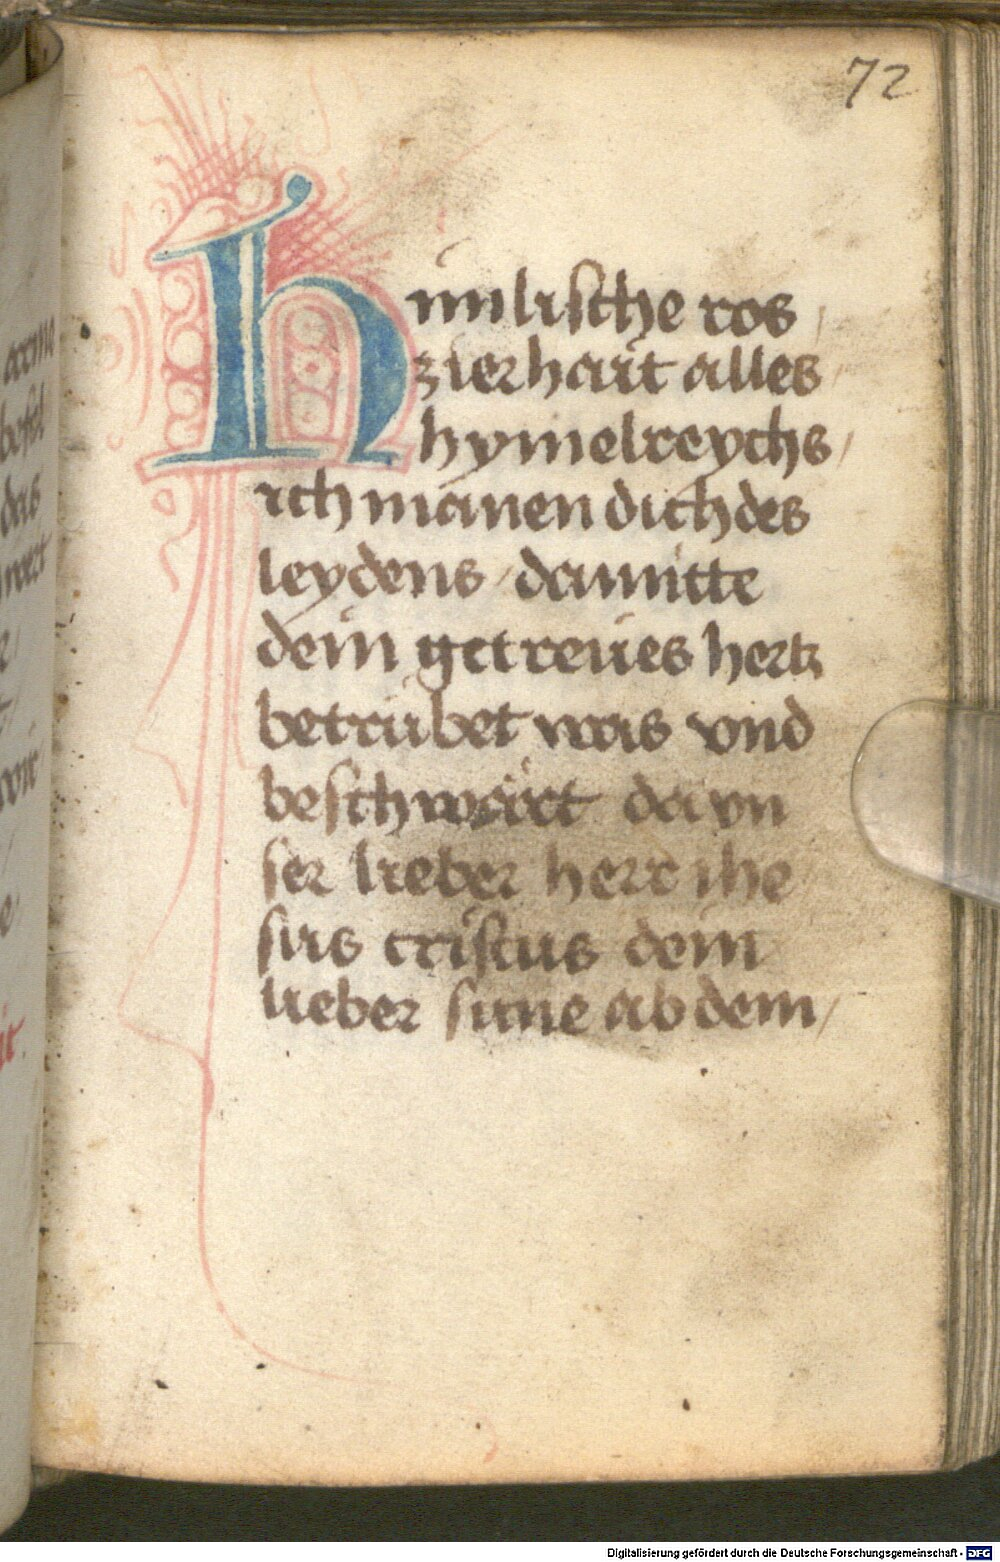 72
Himlische ros /
zierhait alles /
hymelreychs /
ich manen dich des
leydens / damitte
dein getreües hertz
betrübet was vnd
beschwäret da vn
ser lieber herr ihe
sus cristus dein
lieber sune ab dem /
Digitalisierung gefördert durch die Deutsche Forschungsgemeinschaft - DFG